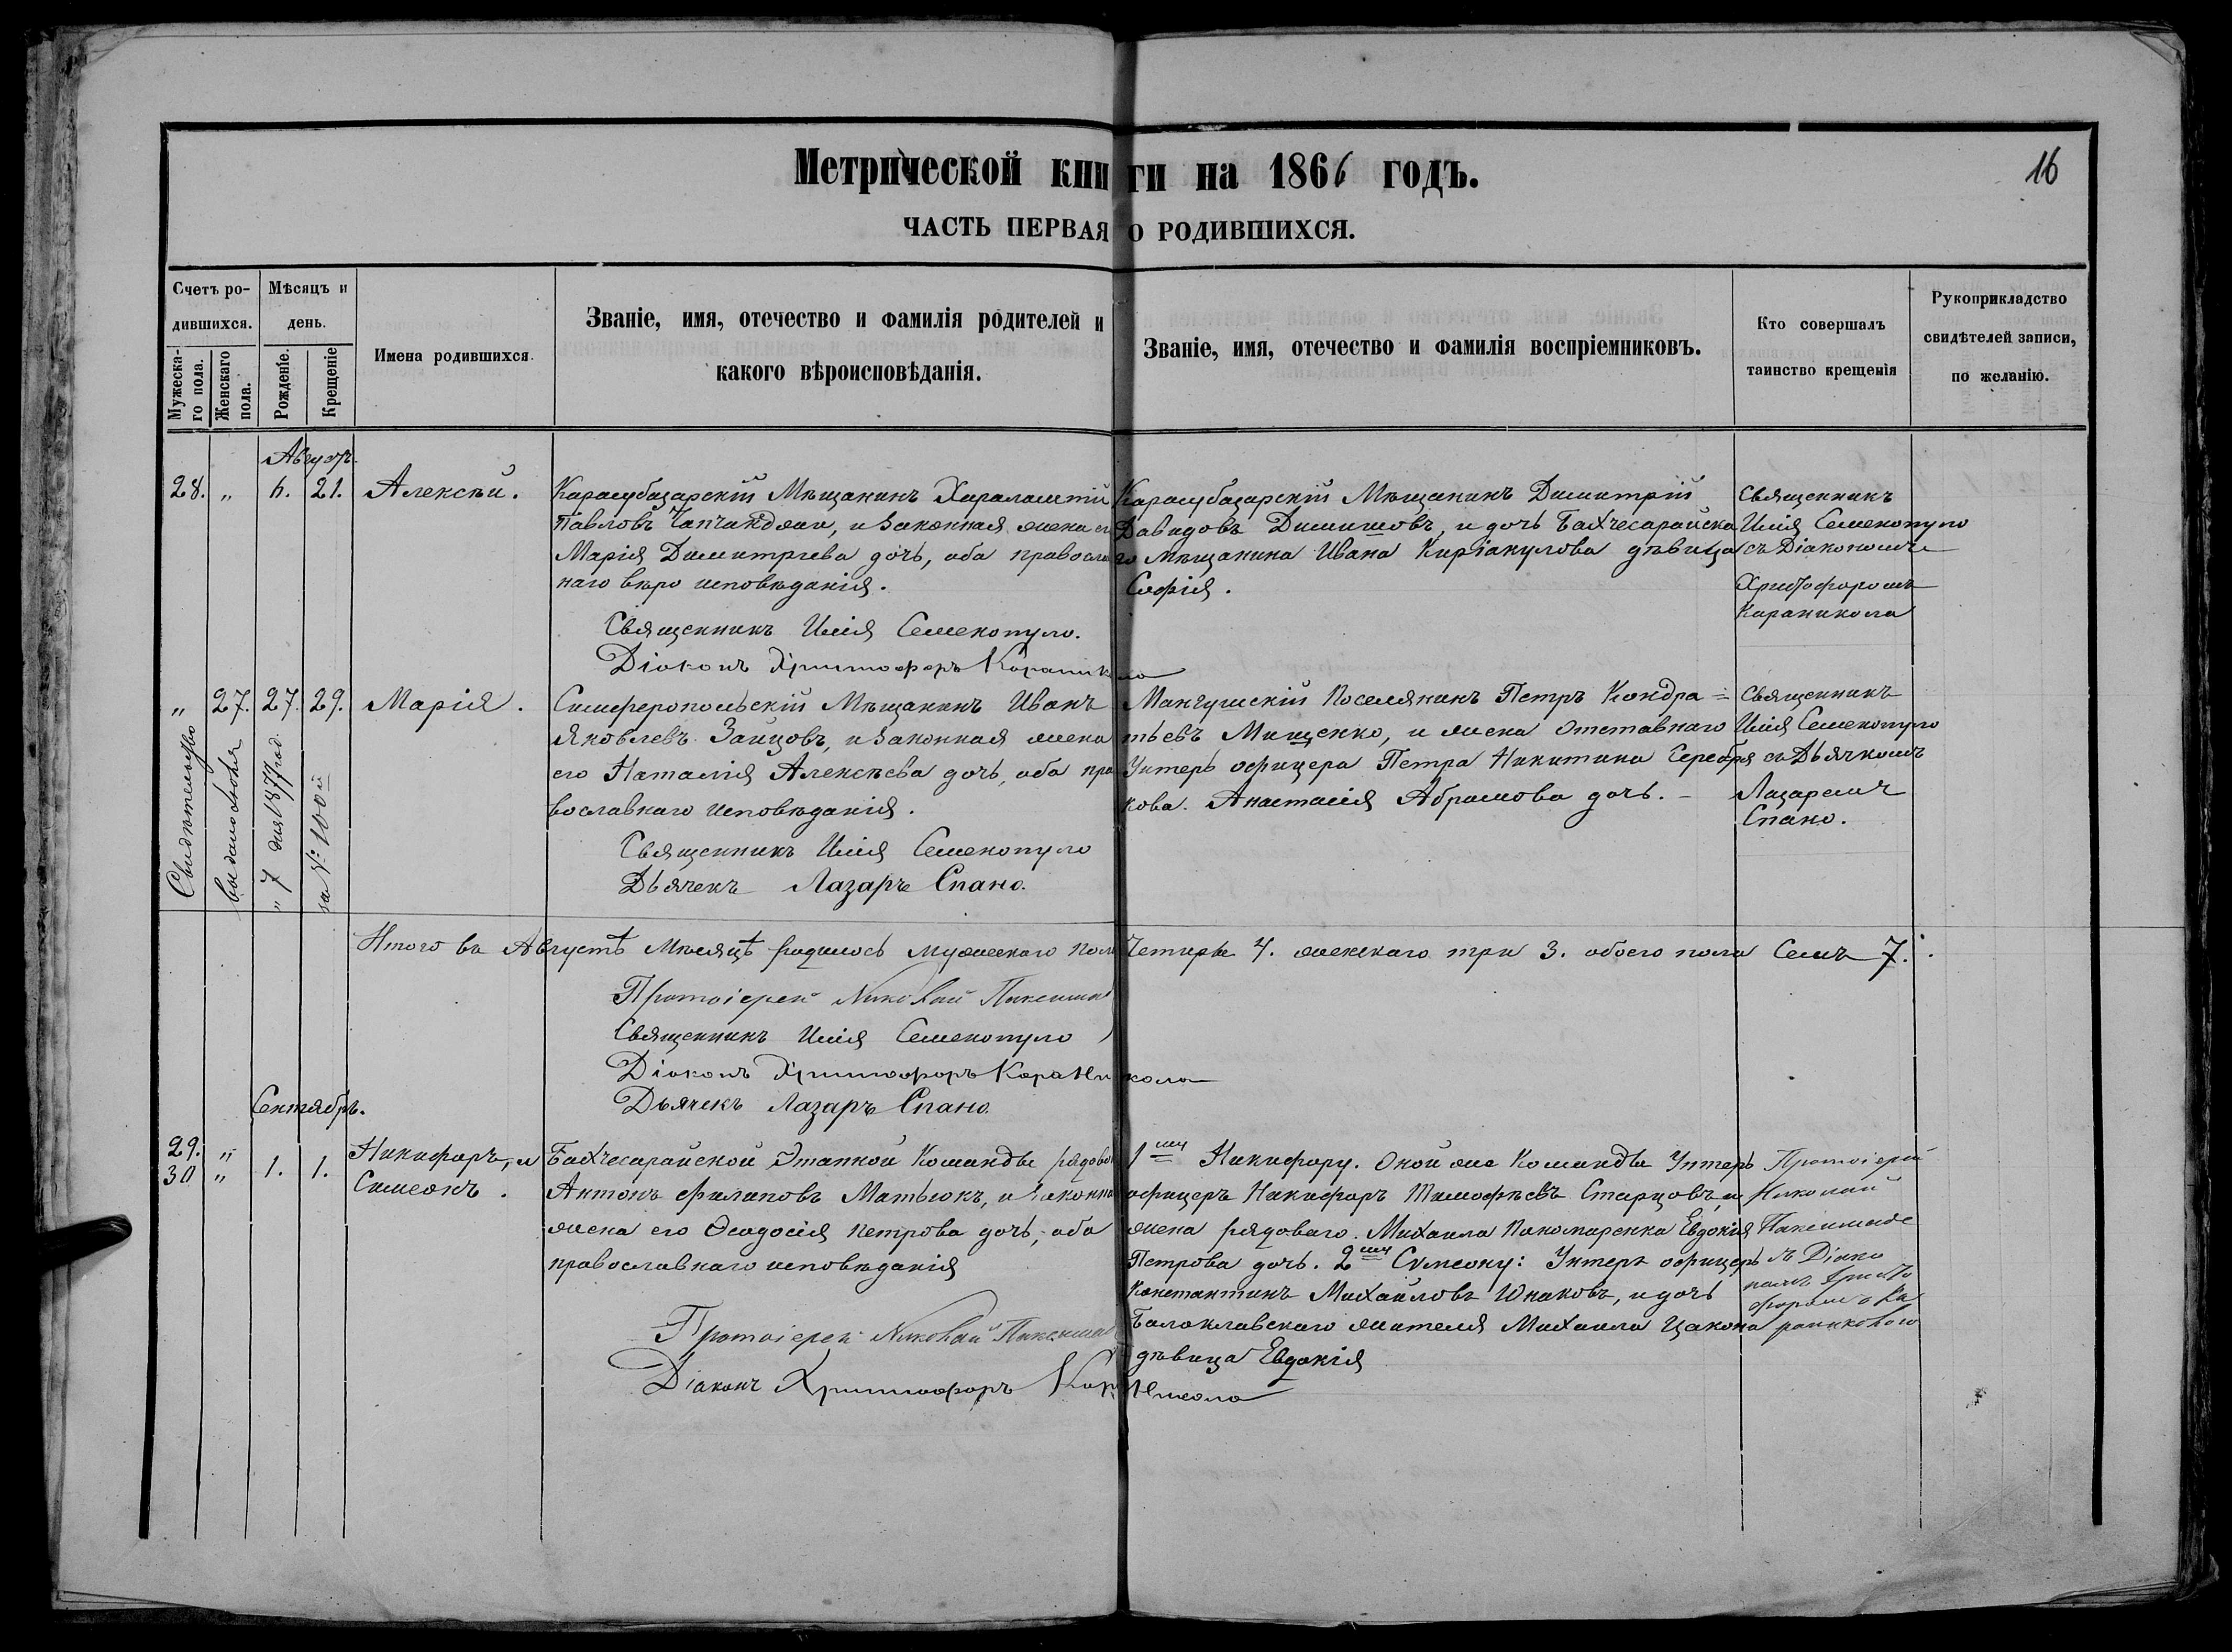 Метрической книги на 1866 годъ.
16
ЧАСТЬ ПЕРВАЯ О РОДИВШИХСЯ.
Счетъ ро-
дившихся.
Мужеска-
го пола.
Женскаго
пола.
Мѣсяцъ и
день.
Рожденіе.
Крещеніе
Имена родившихся.
Званіе, имя, отечество и фамилія родителей и
какого вѣроисповѣданія.
Званіе, имя, отечество и фамилія воспріемниковъ.
Кто совершалъ
таинство крещенія
Рукоприкладство
свидѣтелей записи,
по желанію.
Августъ
28. " 6. 21. Алексѣй.
Карасубазарскій Мѣщанинъ Харалампій
Павловъ, и законная жена его
Марія Димитріева дочь, оба православ
наго вѣро исповѣданія.
Священникъ Илія Семенопуло.
Діаконъ Христофоръ Караникола
Карасубазарскій Мѣщанинъ Димитрій
Давидовъ Димишовъ, и дочь Бахчесарайска
го Мѣщанина Ивана Киріакулова дѣвица
Софія.
Священникъ
Илія Семенопуло
съ Діакономъ
Христофоромъ
Караникола
" 27. 27. 29. Марія.
Симферопольскій Мѣщанинъ Иванъ
Яковлевъ Зайцовъ, и законная жена
его Наталія Алексѣева дочь, оба пра
вославнаго исповѣданія.
Священникъ Илія Семенопуло
Дьячекъ Лазарь Спано.
Мангушскій Поселянинъ Петръ Кондра=
тьевъ Мищенко, и жена Отставнаго
Унтеръ офицера Петра Никитина Серебря
кова. Анастасія Абрамова дочь. –
Священникъ
Илія Семенопуло
съ Дьячкомъ
Лазаремъ
Спано.
Свидѣтельство
выдано
" 7 дня 1877 год.
за №: 100й
Итого въ Августѣ Мѣсяцѣ родилось мужескаго пола Четыре 4. женскаго три 3. обоего пола Семъ 7.
Протоіерей Николай
Священникъ Илія Семенопуло
Діаконъ Христофоръ Караникола
Дьячекъ Лазарь Спано
Сентябрь.
29. "
30 " 1. 1.
Никифоръ, и
Симеонъ.
Бахчесарайской Этапной Команды рядовой
Антонъ Филиповъ Матьюкъ, и законна
жена его Ѳеодосія Петрова дочь, оба
православнаго исповѣданія
Протоіерей Николай
Діаконъ Христофоръ Караникола
1му Никифору. Оной же Команды Унтеръ
офицеръ Никифоръ Тимофѣевъ Старцовъ, и
жена рядоваго Михаила Пономаренка Евдокія
Петрова дочь. 2му Сѵмеону: Унтеръ офицеръ
Константинъ Михайловъ Юнаковъ, и дочь
Балоклавскаго жителя Михаила Цакона
дѣвица Евдокія
Протоіерей
Николай
съ Діако
номъ Христо
форомъ Ка